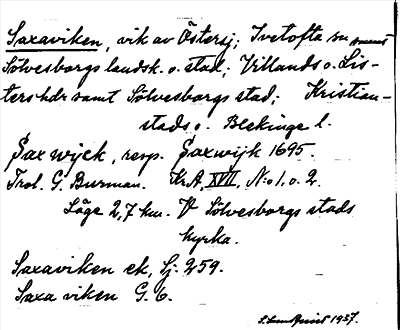 Saxaviken, vik av Östersj; Ivetofta sn samt
Sölvesborgs landsk. o. stad; Villands o. Lis-
ters hdr samt Sölvesborgs stad; Kristian-
stads o. Blekinge l.
Saxwÿck, resp. Saxwijk 1695.
Trol. G. Burman. Kr.A, XVII, N:o 1, o. 2.
Läge 2,7 km. V Sölvesborgs stads
kyrka.
Saxaviken ek, Sj. 259.
Saxa viken G. 6.
1937.